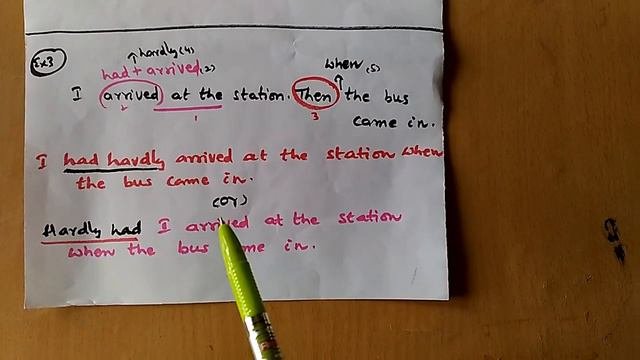 Ex3
hardly (4)
had + arrived (2)
when (5)
I arrived at the station. Then the bus
2 1 3
came in.
I had hardly arrived at the station when
the bus came in.
(or)
Hardly had I arrived at the station
when the bus me in.